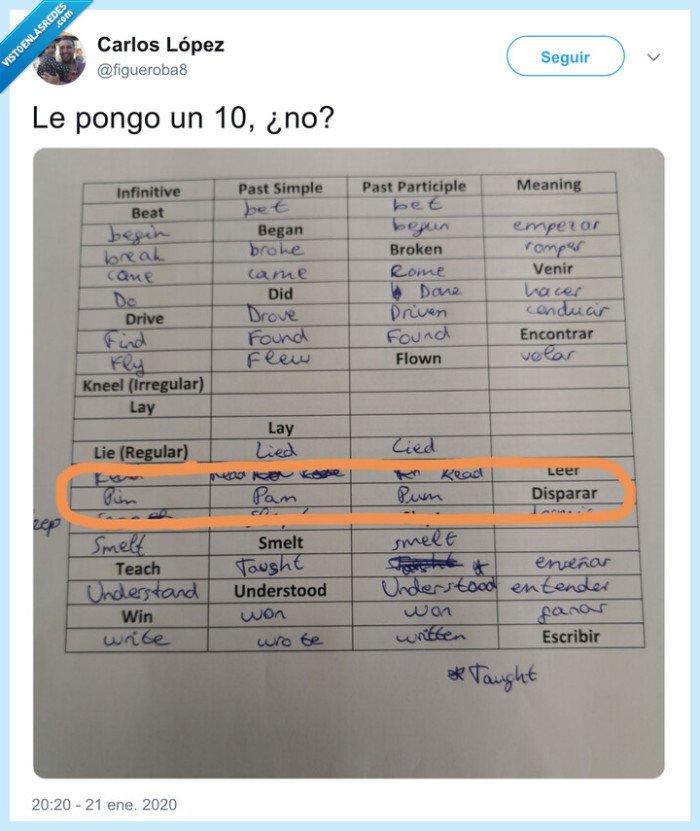 VISTOENLASREDES
.com
Carlos López
@figueroba8
Seguir
Le pongo un 10, ¿no?
Infinitive Past Simple Past Participle Meaning
Beat bet bet
begin Began begun empezar
break broke Broken romper
came came Rome Venir
Do Did Done hacer
Drive Drove Driven conducir
Find Found Found Encontrar
Fly Flew Flown volar
Kneel (Irregular)
Lay
Lay
Lie (Regular) Lied Lied
Read Read Leer
Pim Pam Pum Disparar
Smelt Smelt smelt
Teach Taught * enseñar
Understand Understood Understood entender
Win won won ganar
write wrote written Escribir
*Taught
20:20 - 21 ene. 2020